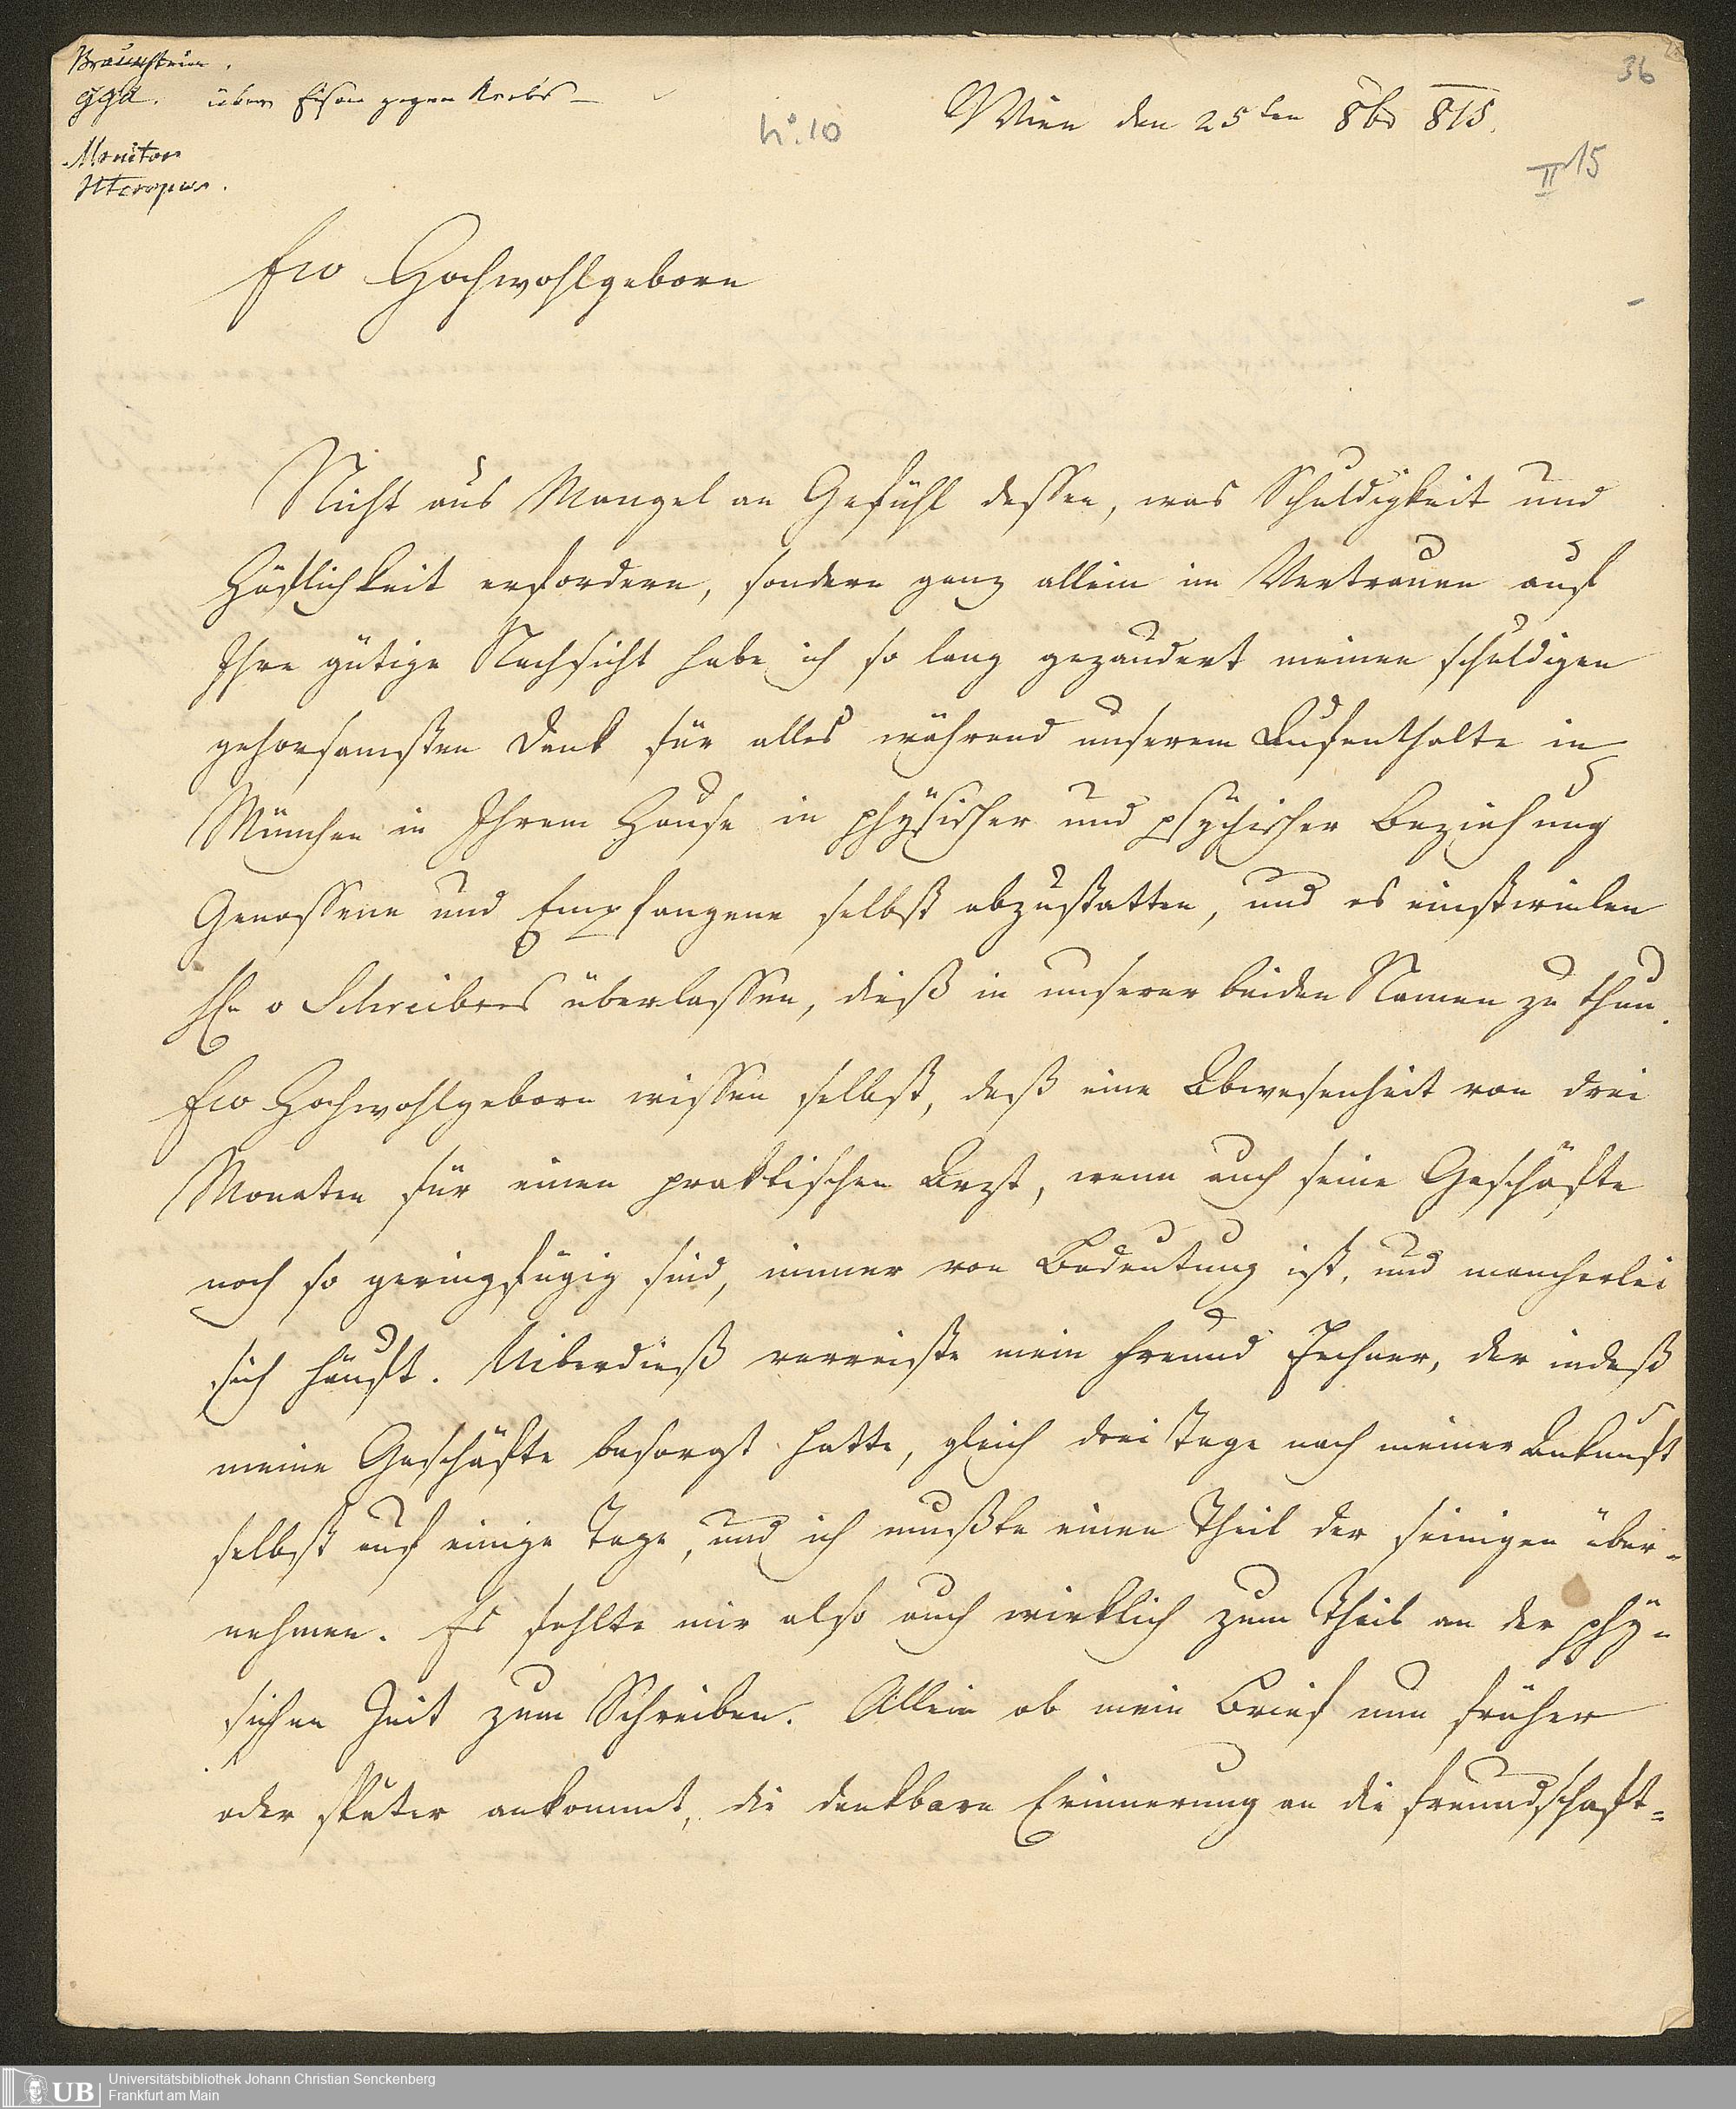 Braunstein.
ggl. über Eisen gegen Krebs —
Monitor
Pteropus.
36
No. 10
Wien den 25ten 8br 815.
II 15
Ew Hochwohlgeborn
Nicht aus Mangel an Gefühl dessen, was Schuldigkeit und
Höflichkeit erfordern, sondern ganz allein im Vertrauen auf
Ihre gütige Nachsicht habe ich so lang gezaudert meinen schuldigen
gehorsamsten Dank für alles während unserem Aufenthalte in
München in Ihrem Hause in physischer und psychischer Beziehung
Genossene und Empfangene selbst abzustatten, und es einstweilen
Hr v Schreibers überlassen, dieß in unserer beiden Namen zu thun.
Ew Hochwohlgeborn wissen selbst, daß eine Abwesenheit von drei
Monaten für einen praktischen Arzt, wenn auch seine Geschäfte
noch so geringfügig sind, immer von Bedeutung ist, und mancherlei
sich häuft. Uiberdieß verreiste mein Freund Fechner, der indeß
meine Geschäfte besorgt hatte, gleich drei Tage nach meiner Ankunft
selbst auf einige Tage, und ich mußte einen Theil der seinigen über-
nehmen. Es fehlte mir also auch wirklich zum Theil an der phÿ-
sischen Zeit zum Schreiben. Allein ob mein Brief nun früher
oder später ankommt, die dankbare Erinnerung an die freundschaft-
Universitätsbibliothek Johann Christian Senckenberg
UB
Frankfurt am Main